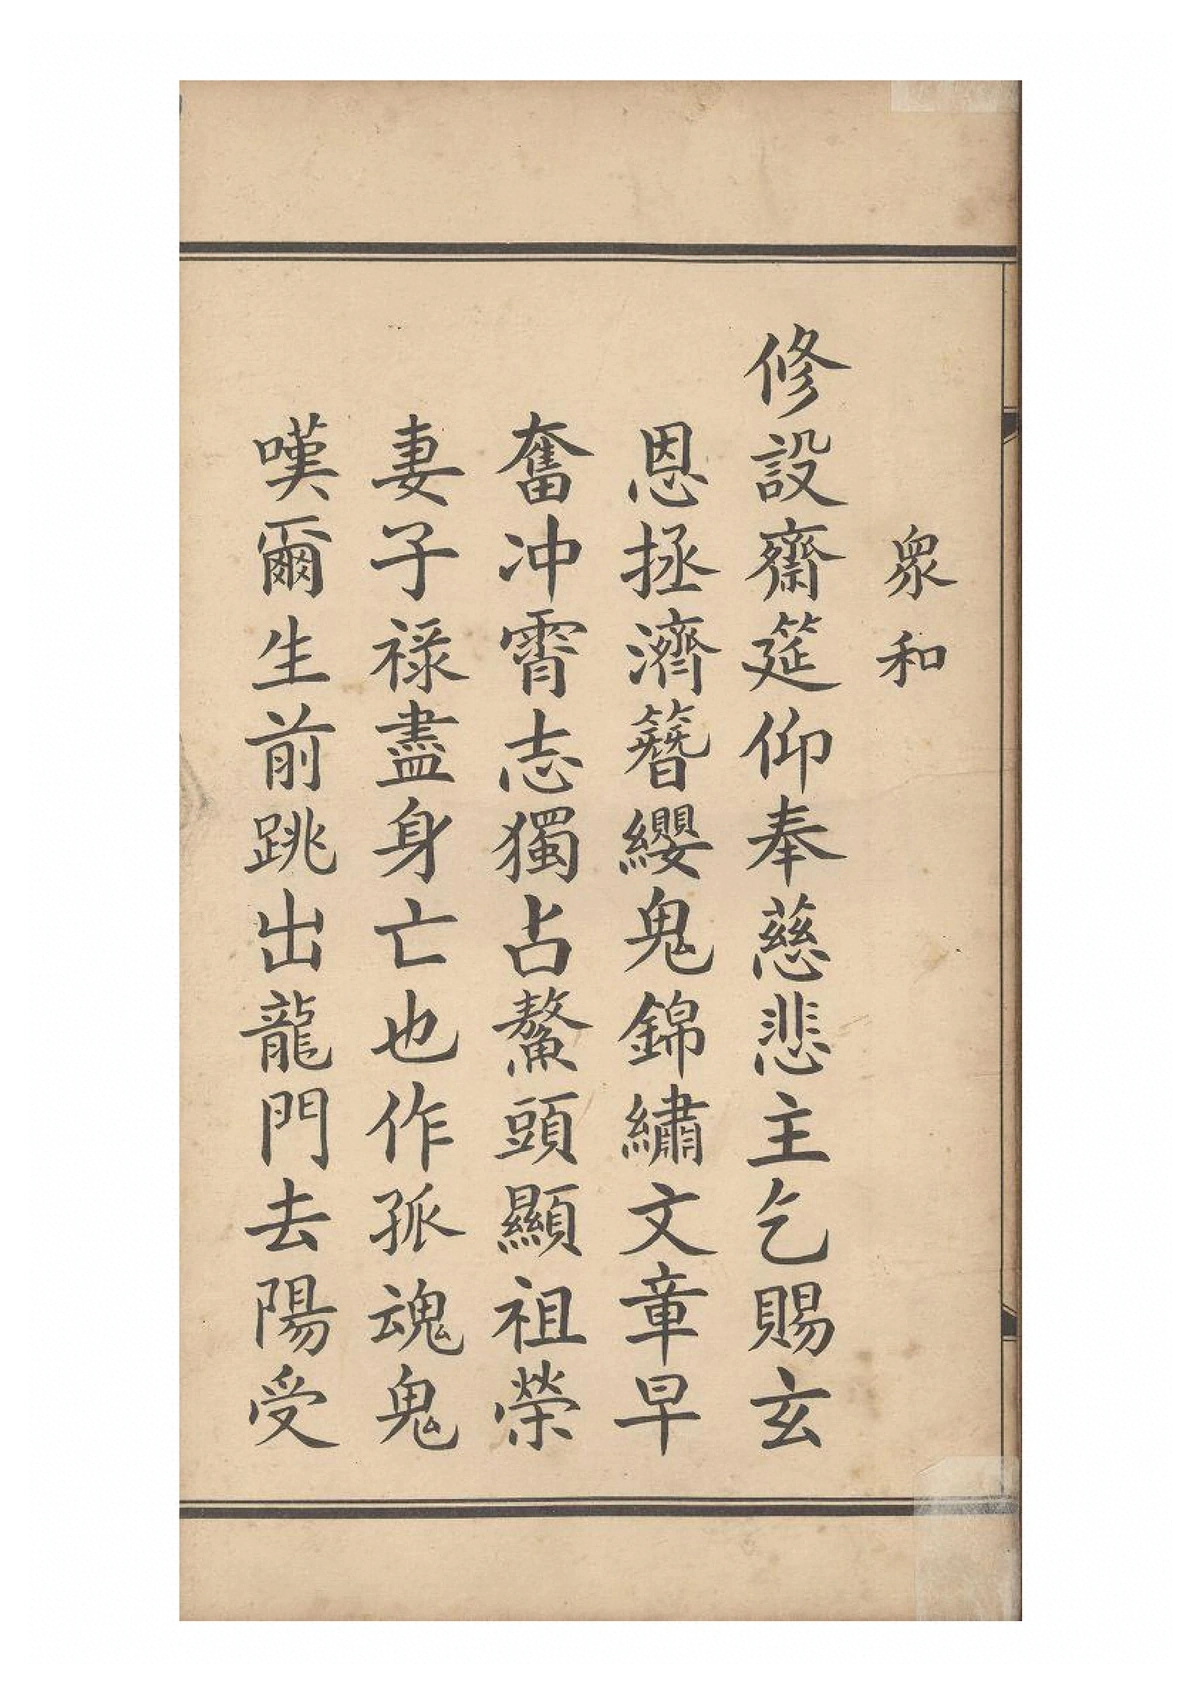 眾和
修設齋筵仰奉慈悲主乞賜玄
恩拯濟簪纓鬼錦繡文章早
奮冲霄志獨占鰲頭顯祖榮
妻子祿盡身亡也作孤魂鬼
嘆爾生前跳出龍門去陽受